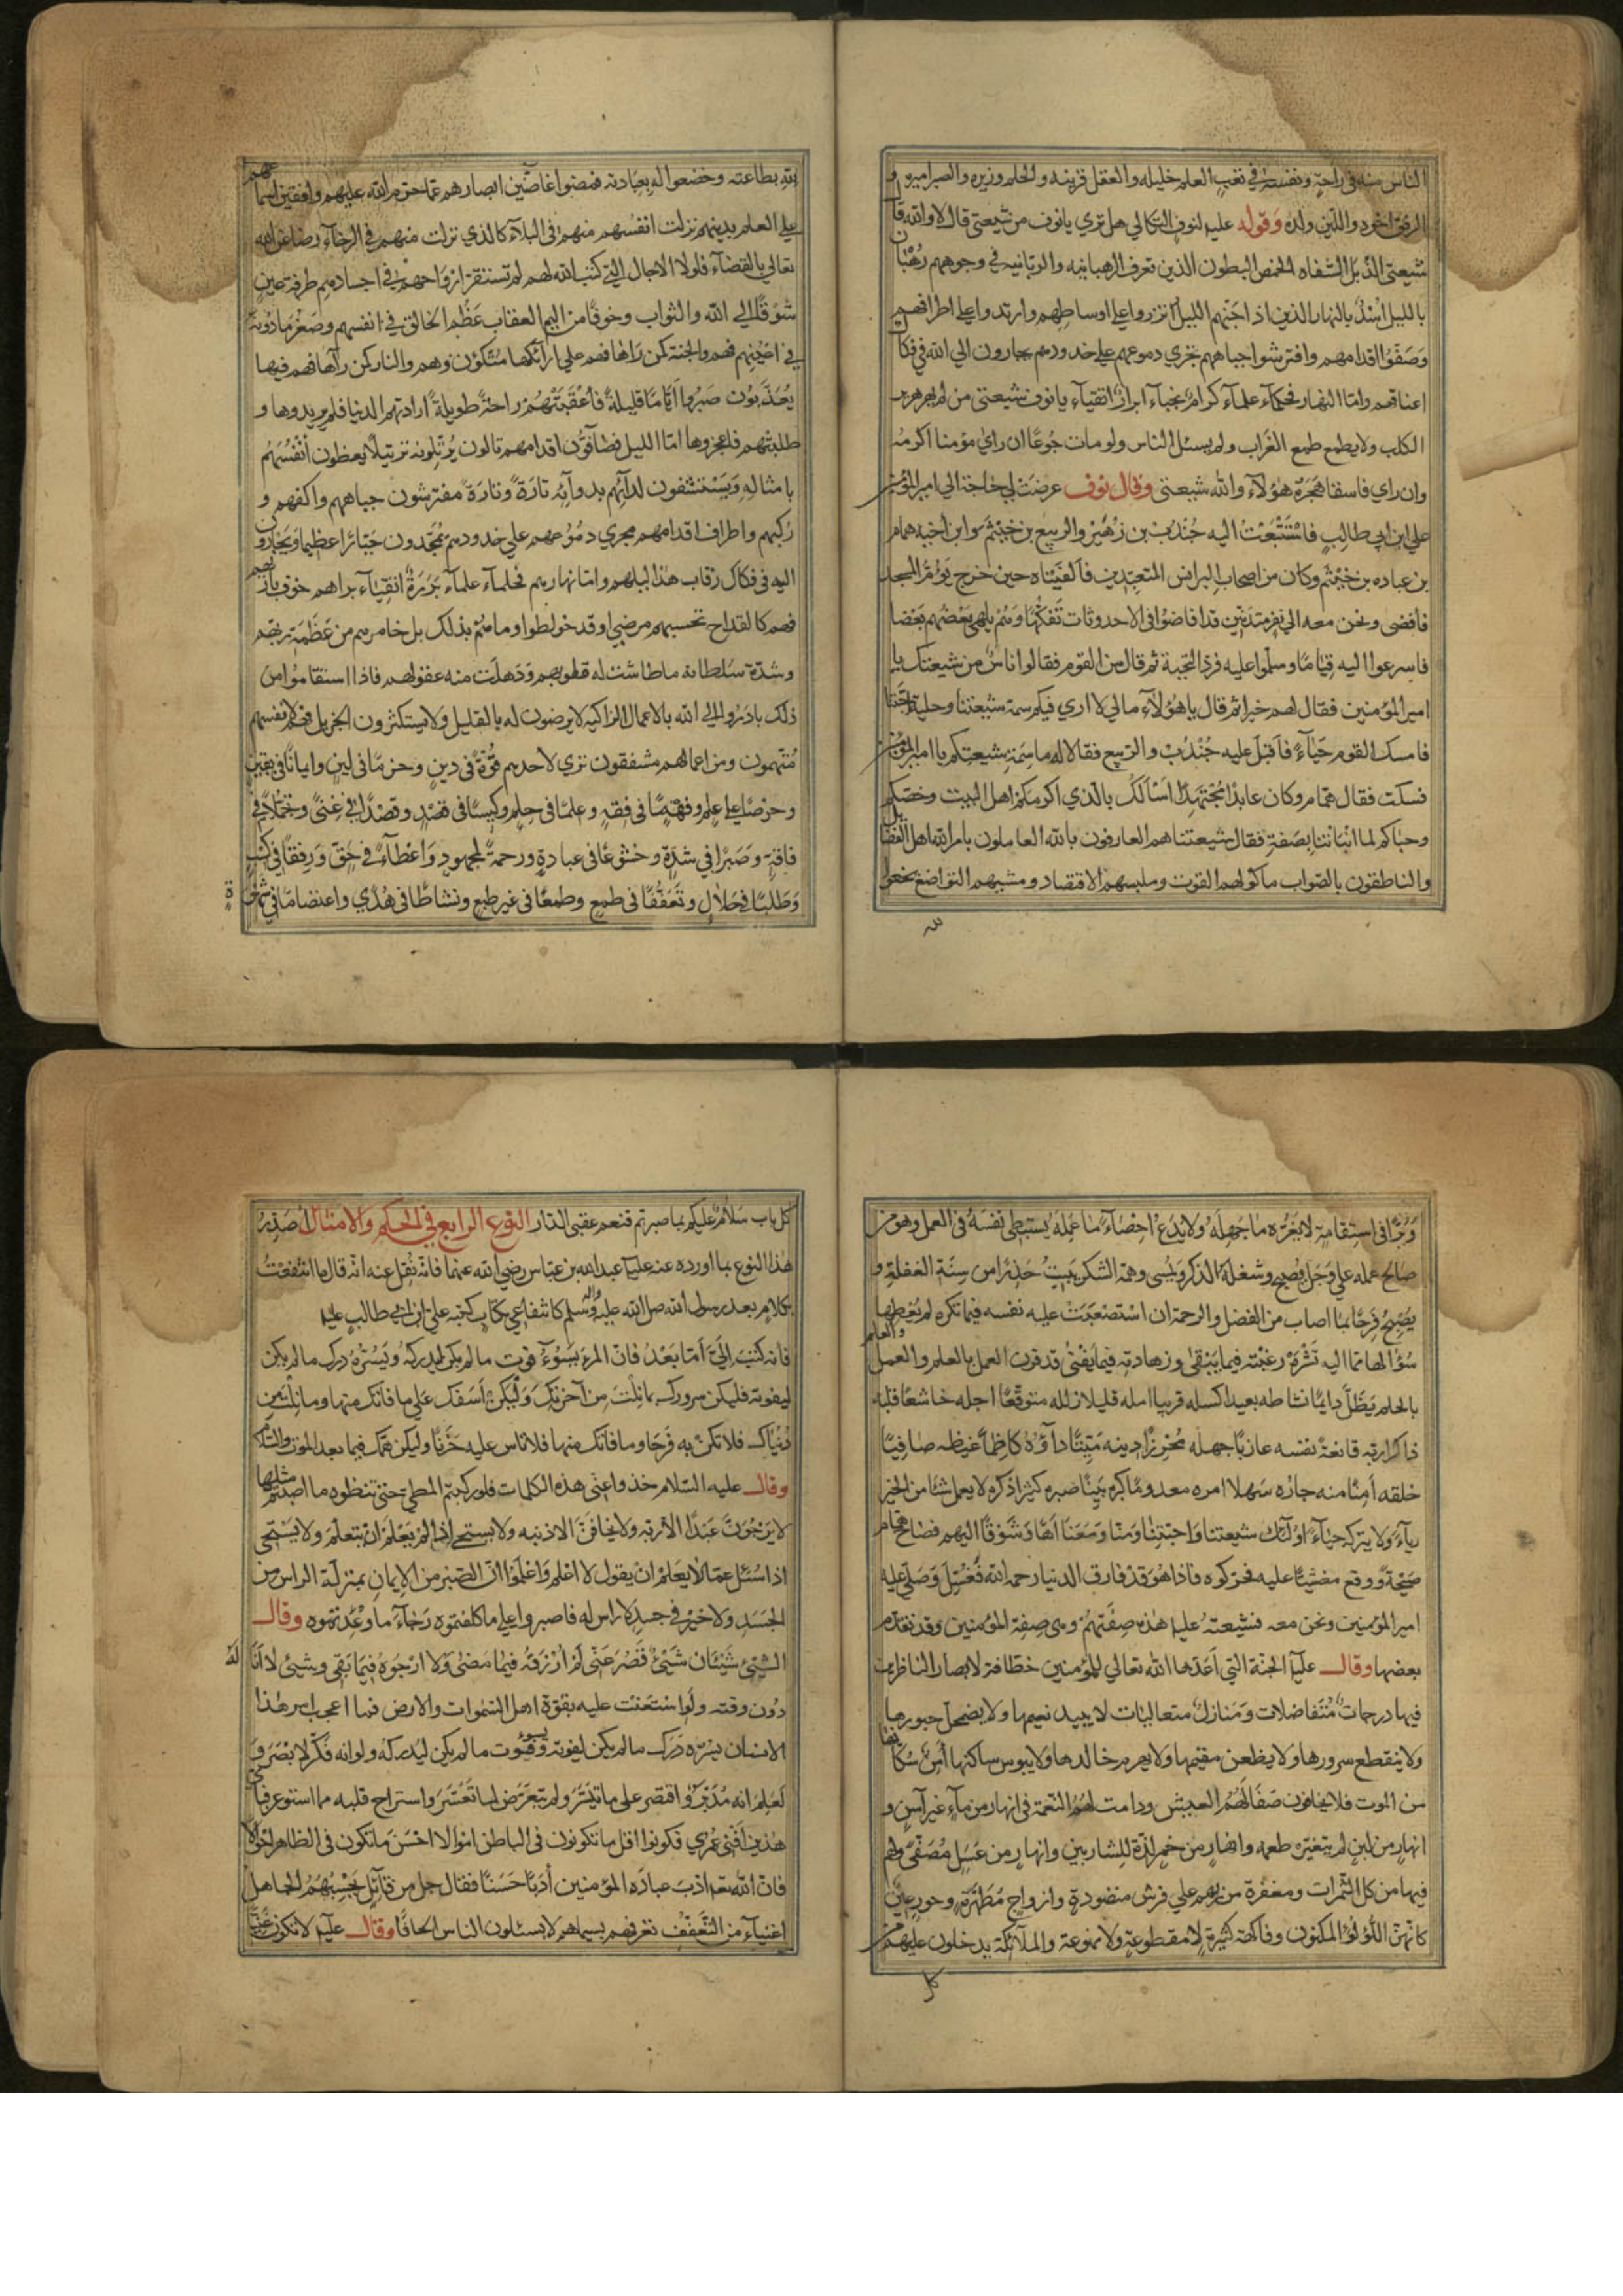 الناس منه في راحة ونفسه في تعب العلم خليله والعقل قرينه والحلم وزيره والصبر اميره و
الرفق اخوه واللين ولده وقوله عليه لنوف البكالي هل تري يا نوف من شيعتي قال لا والله قال
شيعتي الذبل الشفاه الخمص البطون الذين تعرف الرهبانية والربانية في وجوههم رهبان
بالليل اسد بالنهار الذين اذا جنهم الليل اتزروا علي اوساطهم وارتدوا علي اطرافهم
وصفوا اقدامهم وافترشوا جباههم تجري دموعهم علي خدودهم يجارون الي الله في فكاك
اعناقهم واما النهار فحكماء علماء كرام نجباء ابرار اتقياء يا نوف شيعتي من لم يهر هرير
الكلب ولا يطمع طمع الغراب ولم يسئل الناس ولو مات جوعا ان راي مؤمنا اكرمه
وان راي فاسقا هجره هؤلاء والله شيعتي وقال نوف عرضت لي حاجة الي امير المؤمنين
علي ابن ابي طالب فاستتبعت اليه جندب بن زهير والربيع بن خيثم وابن اخيه همام
بن عباده بن خيثم وكان من اصحاب البرانس المتعبدين فالفيناه حين خرج يؤم المسجد
فافضى ونحن معه الي نفر متدينين قد افاضوا في الاحدوثات تفكها وهم يلهي بعضهم بعضا
فاسرعوا اليه قياما وسلموا عليه فرد التحية ثم قال من القوم فقالوا ناس من شيعتك يا
امير المؤمنين فقال لهم خيرا ثم قال يا هؤلاء ما لي لا اري فيكم سمة شيعتنا وحلية احبتنا
فامسك القوم حياء فاقبل عليه جندب والربيع فقالا له ما سمة شيعتكم يا امير المؤمنين
فسكت فقال همام وكان عابدا مجتهدا اسألك بالذي اكرمكم اهل البيت وخصكم
وحباكم لما انباتنا بصفة شيعتكم فقال شيعتنا هم العارفون بالله العاملون بامر الله اهل الفضائل
والناطقون بالصواب ماكولهم القوت وملبسهم الاقتصاد ومشيهم التواضع بخعوا
لله
لله بطاعته وخضعوا له بعبادته فمضوا غاضين ابصارهم عما حرم الله عليهم واقفين اسماعهم
علي العلم بدينهم نزلت انفسهم منهم في البلاء كالذي نزلت منهم في الرخاء رضا عن الله
تعالي بالقضاء فلولا الاجال التي كتب الله لهم لم تستقر ارواحهم في اجسادهم طرفة عين
شوقا الي الله والثواب وخوفا من اليم العقاب عظم الخالق في انفسهم وصغر ما دونه
في اعينهم فهم والجنة كمن راها فهم علي ارائكها متكؤن وهم والنار كمن رآها فهم فيها
يعذبون صبروا اياما قليلة فأعقبتهم راحة طويلة ارادتهم الدنيا فلم يريدوها و
طلبتهم فاعجزوها اما الليل فصافون اقدامهم تالون يرتلونه ترتيلا يعظون انفسهم
بامثاله ويستشفون لدائهم بدوائه تارة وتارة مفترشون جباههم واكفهم و
ركبهم واطراف اقدامهم تجري دموعهم علي خدودهم يمجدون جبارا عظيما ويجارون
اليه في فكاك رقاب هذا ليلهم واما نهارهم فحلماء علماء بررة اتقياء براهم خوف بارئهم
فهم كالقداح تحسبهم مرضي او قد خولطوا وما هم بذلك بل خامرهم من عظمة ربهم
وشدة سلطانه ما طاشت له قلوبهم وذهلت منه عقولهم فاذا استقاموا من
ذلك بادروا الي الله بالاعمال الزاكية لا يرضون له بالقليل ولا يستكثرون الجزيل فهم لانفسهم
متهمون ومن اعمالهم مشفقون تري لاحدهم قوة في دين وحزما في لين وايمانا في يقين
وحرصا علي علم وفهما في فقه وعلما في حلم وكيسا في قصد وقصدا في غني وتجملا في
فاقة وصبرا في شدة وخشوعا في عبادة ورحمة لمجهود واعطاء في حق ورفقا في كسب
وطلبا في حلال وتعففا في طمع وطمعا في غير طبع ونشاطا في هدي واعتصاما في شهوة
وبرا في استقامة لا يغره ما جهله ولا يدع احصاء ما عمله يستبطي نفسه في العمل وهو من
صالح عمله علي وجل يصبح وشغله الذكر ويمسي وهمه الشكر يبيت حذرا من سنة الغفلة و
يصبح فرحا بما اصاب من الفضل والرحمة ان استصعبت عليه نفسه فيما تكره لم يعطها
سؤالها مما اليه تشره رغبته فيما يبقي وزهادته فيما يفني قد قرن العمل بالعلم والعلم
بالحلم يظل دائما نشاطه بعيدا كسله قريبا امله قليلا زلله متوقعا اجله خاشعا قلبه
ذاكرا ربه قانعة نفسه عازبا جهله محرزا دينه ميتا داؤه كاظما غيظه صافيا
خلقه أمنا منه جاره سهلا امره معدوما كبره بينا صبره كثيرا ذكره لا يعمل شيا من الخير
رياء ولا يتركه حياء اولئك شيعتنا واحبتنا ومنا ومعنا اها وشوقا اليهم فصاح همام
صيحة ووقع مغشيا عليه فحركوه فاذا هو قد فارق الدنيا رحمه الله فغسل وصلي عليه
امير المؤمنين ونحن معه فشيعته عليه هذه صفتهم وهي صفة المؤمنين وقد تقدم
بعضها وقال عليه الجنة التي اعدها الله تعالي للمؤمنين خطافة لابصار الناظرين
فيها درجات متفاضلات ومنازل متعاليات لا يبيد نعيمها ولا يضمحل حبورها
ولا ينقطع سرورها ولا يظعن مقيمها ولا يهرم خالدها ولا يبوس ساكنها أمن سكانها
من الموت فلا يخافون صفا لهم العيش ودامت لهم النعمة في انهار من ماء غير آسن و
انهار من لبن لم يتغير طعمه وانهار من خمر لذة للشاربين وانهار من عسل مصفى ولهم
فيها من كل الثمرات ومغفرة من ربهم علي فرش منضودة وازواج مطهرة وحور عين
كانهن اللؤلؤ المكنون وفاكهة كثيرة لا مقطوعة ولا ممنوعة والملآئكة يدخلون عليهم من
كل
كل باب سلام عليكم بما صبرتم فنعم عقبى الدار النوع الرابع في الحكم والامثال أصدر
هذا النوع بما اورده عنه عليه عبد الله بن عباس رضي الله عنهما فانه نقل عنه انه قال ما انتفعت
بكلام بعد رسول الله صلى الله عليه وآله وسلم كانتفاعي بكتاب كتبه علي ابن ابي طالب عليه
فانه كتب الي أما بعد فان المرء يسوءه فوت ما لم يكن ليدركه ويسره درك ما لم يكن
ليفوته فليكن سرورك بما نلت من آخرتك وليكن اسفك علي ما فاتك منها وما نلت من
دنياك فلا تكن به فرحا وما فاتك منها فلا تاس عليه حزنا وليكن همك فيما بعد الموت والسلام
وقال عليه السلام خذوا عني هذه الكلمات فلو ركبتم المطي حتي تنضوه ما اصبتم مثلها
لا يرجون عبد الا ربه ولا يخافن الا ذنبه ولا يستحي اذا لم يعلم ان يتعلم ولا يستحي
اذا سئل عما لا يعلم ان يقول لا اعلم واعلموا ان الصبر من الايمان بمنزلة الراس من
الجسد ولا خير في جسد لا راس له فاصبروا علي ما كلفتموه رجاء ما وعدتموه وقال
الشيئ شيئان شيئ قصر عني لم ارزقه فيما مضى ولا ارجوه فيما بقي وشيئ لا اناله
دون وقته ولو استعنت عليه بقوة اهل السموات والارض فما اعجب امر هذا
الانسان يسره درك ما لم يكن ليفوته ويسوءه فوت ما لم يكن ليدركه ولو انه فكر لابصر و
لعلم انه مدبر واقتصر علي ما تيسر ولم يتعرض لما تعسر واستراح قلبه مما استوعر فباي
هذين أفني عمري فكونوا اقل ما تكونون في الباطن اموالا احسن ما تكون في الظاهر احوالا
فان الله تعه ادب عباده المؤمنين أدبا حسنا فقال جل من قائل يحسبهم الجاهل
اغنياء من التعفف تعرفهم بسيماهم لا يسئلون الناس الحافا وقال عليه لا تكون غنيا